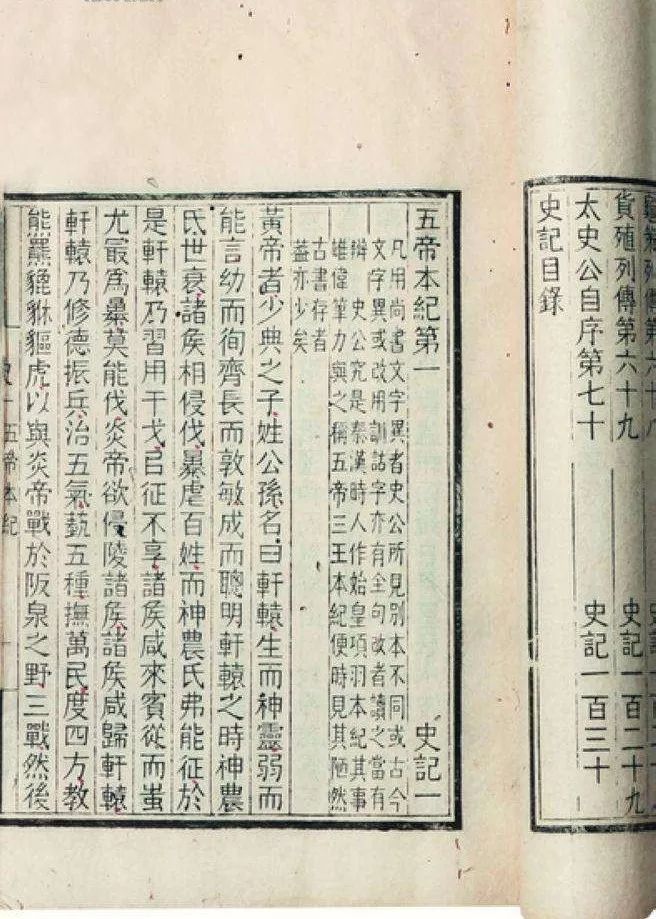 龜策列傳第六十八
貨殖列傳第六十九 史記一百二十九
太史公自序第七十 史記一百三十
史記目錄
五帝本紀第一 史記一
凡用尚書文字異者史公所見別本不同或古今
文字異或改用訓詁字亦有全句改者讀之當有
辨史公究是秦漢時人作始皇項羽本紀其事
雄偉筆力與之稱五帝三王本紀便時見其陋然
古書存者
蓋亦少矣
黃帝者少典之子姓公孫名曰軒轅生而神靈弱而
能言幼而徇齊長而敦敏成而聰明軒轅之時神農
氏世衰諸矦相侵伐暴虐百姓而神農氏弗能征於
是軒轅乃習用干戈㠯征不享諸矦咸來賓從而蚩
尤冣爲暴莫能伐炎帝欲侵陵諸矦諸矦咸歸軒轅
軒轅乃修德振兵治五氣蓺五種撫萬民度四方教
熊羆貔貅貙虎以與炎帝戰於阪泉之野三戰然後
史一 五帝本紀 一